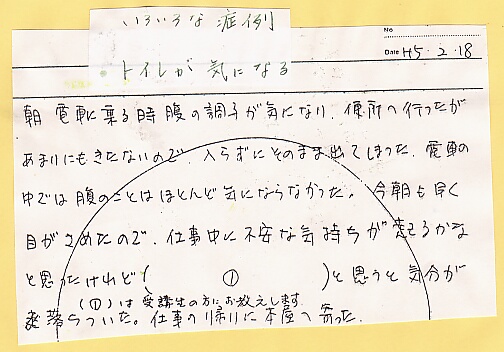 いろいろな症例
No
・トイレが気になる
Date H5・2・18
朝 電車に乗る時腹の調子が気になり、便所へ行ったが
あまりにもきたないので、入らずにそのまま出てしまった。電車の
中では腹のことはほとんど気にならなかった。今朝も早く
目がさめたので、仕事中に不安な気持ちが起こるかな
と思ったけれど( ① )と思うと気分が
(①)は受講生の方にお教えします.
落ちついた。仕事の帰りに本屋へ寄った.